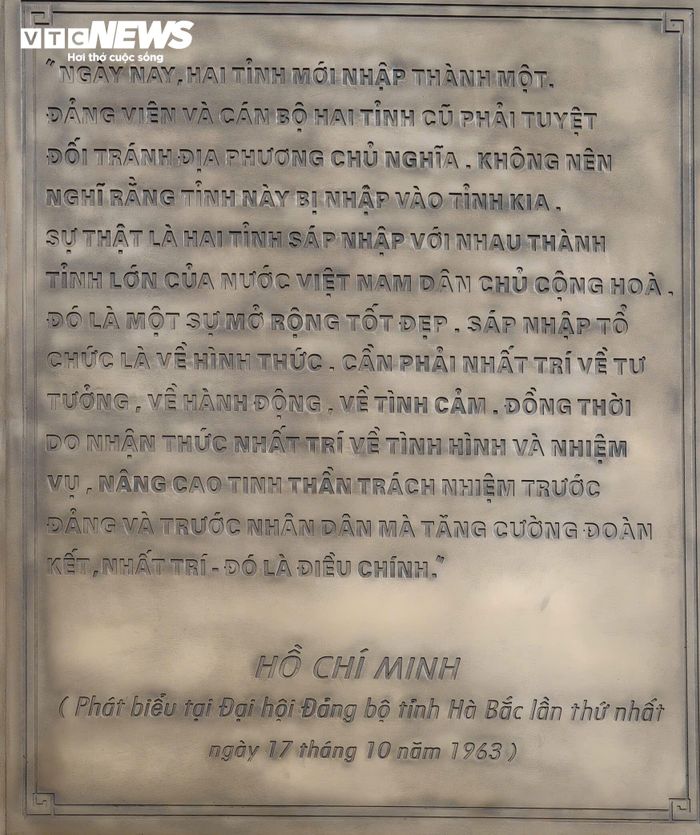 VTC NEWS
Hơi thở cuộc sống
"NGÀY NAY, HAI TỈNH MỚI NHẬP THÀNH MỘT.
ĐẢNG VIÊN VÀ CÁN BỘ HAI TỈNH CŨ PHẢI TUYỆT
ĐỐI TRÁNH ĐỊA PHƯƠNG CHỦ NGHĨA. KHÔNG NÊN
NGHĨ RẰNG TỈNH NÀY BỊ NHẬP VÀO TỈNH KIA.
SỰ THẬT LÀ HAI TỈNH SÁP NHẬP VỚI NHAU THÀNH
TỈNH LỚN CỦA NƯỚC VIỆT NAM DÂN CHỦ CỘNG HOÀ.
ĐÓ LÀ MỘT SỰ MỞ RỘNG TỐT ĐẸP. SÁP NHẬP TỔ
CHỨC LÀ VỀ HÌNH THỨC. CẦN PHẢI NHẤT TRÍ VỀ TƯ
TƯỞNG, VỀ HÀNH ĐỘNG, VỀ TÌNH CẢM. ĐỒNG THỜI
DO NHẬN THỨC NHẤT TRÍ VỀ TÌNH HÌNH VÀ NHIỆM
VỤ, NÂNG CAO TINH THẦN TRÁCH NHIỆM TRƯỚC
ĐẢNG VÀ TRƯỚC NHÂN DÂN MÀ TĂNG CƯỜNG ĐOÀN
KẾT, NHẤT TRÍ - ĐÓ LÀ ĐIỀU CHÍNH."
HỒ CHÍ MINH
( Phát biểu tại Đại hội Đảng bộ tỉnh Hà Bắc lần thứ nhất
ngày 17 tháng 10 năm 1963 )